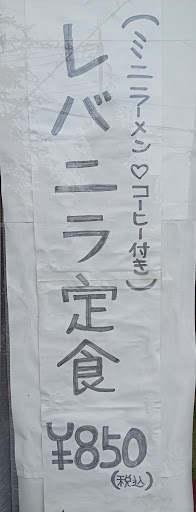 (ミニラーメン♡コーヒー付き)
レバニラ定食
¥850
(税込)